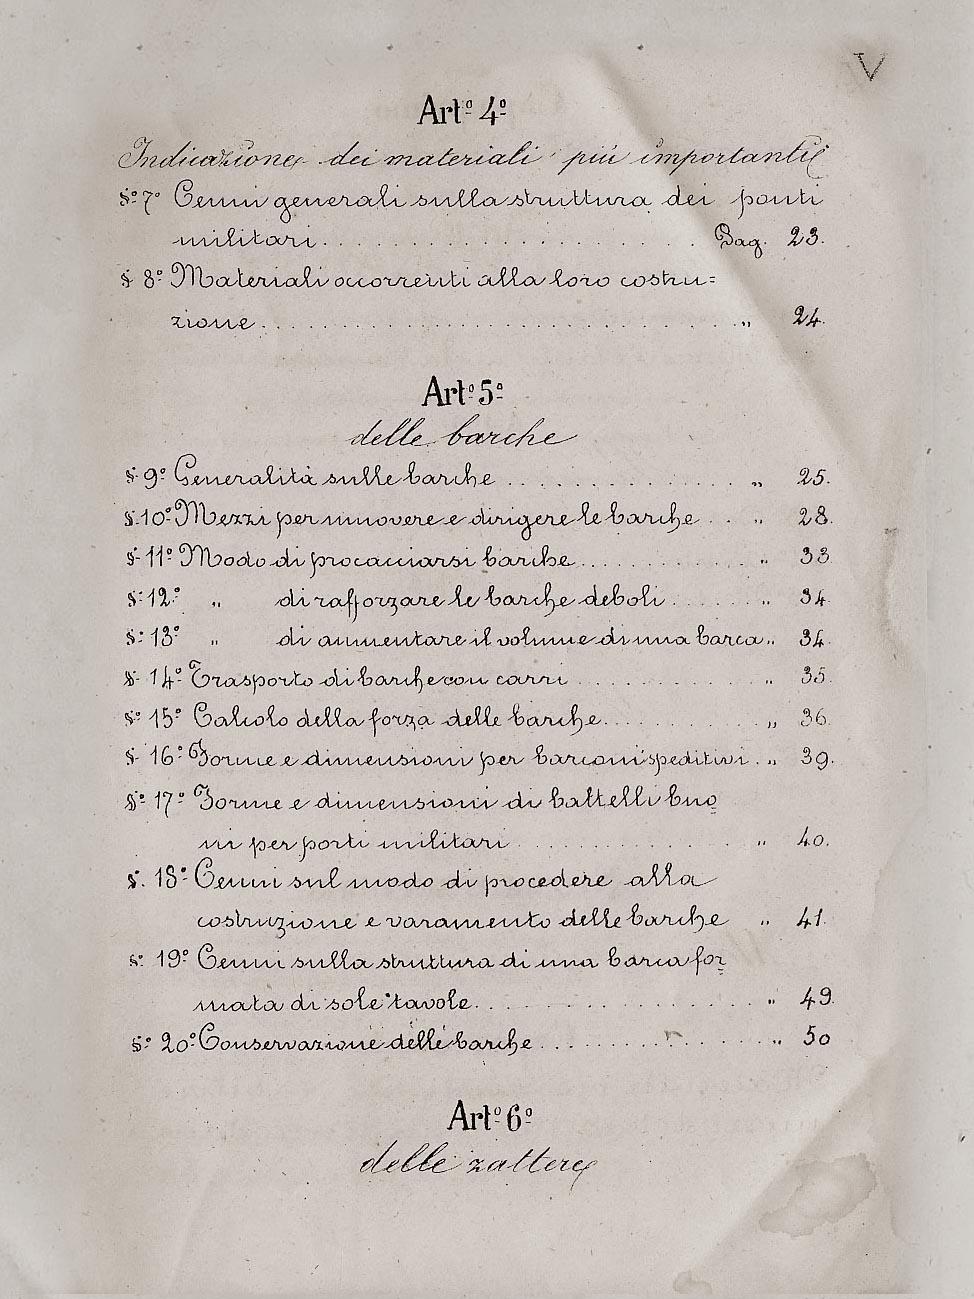 V
Art.º 4º
Indicazione dei materiali più importanti
§º 7º Cenni generali sulla struttura dei ponti
militari. . . . . . . . . . . . . . . . . . . . Pag. 23.
§ 8º Materiali occorrenti alla loro costru=
zione. . . . . . . . . . . . . . . . . . . . . . . . . „ 24.
Art.º 5º
delle barche
§ 9º Generalità sulle barche . . . . . . . . . . . . . „ 25.
§ 10º Mezzi per muovere e dirigere le barche . . „ 28.
§ 11º Modo di procacciarsi barche. . . . . . . . . . „ 33
§ 12º „ di rafforzare le barche deboli . . . . . . „ 34
§ 13º „ di aumentare il volume di una barca „ 34.
§ 14º Trasporto di barche con carri . . . . . . . . . . „ 35.
§º 15º Calcolo della forza delle barche. . . . . . . . . „ 36
§ 16º Forme e dimensioni per barconi speditivi . „ 39.
§º 17º Forme e dimensioni di battelli buo
ni per porti militari . . . . . . . . . . . . . „ 40.
§. 18º Cenni sul modo di procedere alla
costruzione e varamento delle barche „ 41.
§º 19º Cenni sulla struttura di una barca for
mata di sole tavole. . . . . . . . . . . . . . . „ 49.
§º 20º Conservazione delle barche . . . . . . . . . . . . „ 50
Art.º 6º
delle zattere